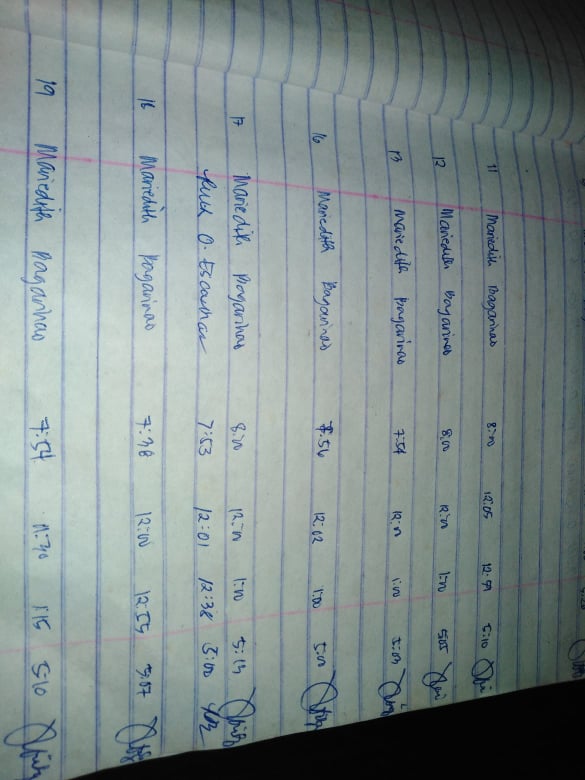 11 Mariedith Bagarinao 8:00 12:05 12:59 5:10
12 Mariedith Bagarinao 8:00 12:00 1:00 5:05
13 Mariedith Bagarinao 7:54 12:00 1:00 5:03
16 Mariedith Bagarinao 7:56 12:02 1:00 5:00
17 Mariedith Bagarinao 8:00 12:00 1:00 5:13
O. 7:53 12:01 12:38 5:00
18 Mariedith Bagarinao 7:38 12:00 12:55 5:07
19 Mariedith Bagarinao 7:54 11:30 1:15 5:10